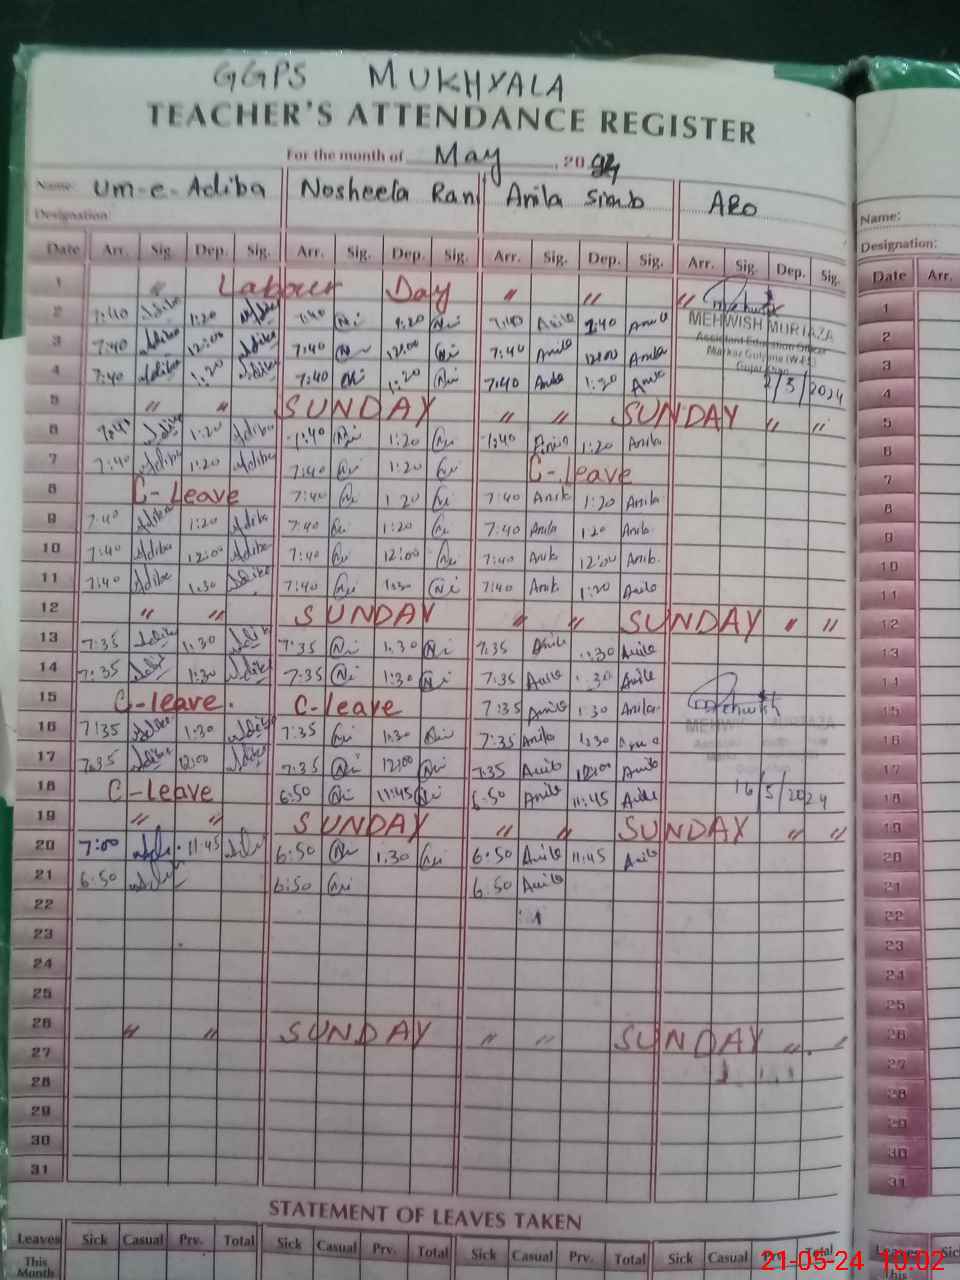 GGPS MUKHYALA
TEACHER'S ATTENDANCE REGISTER
For the month of May, 2024
Name: Um-e-Adiba Nosheela Ran Anila Simb ARO Name:
Designation: Designation:
Date Arr. Sig. Dep. Sig. Arr. Sig. Dep. Sig. Arr. Sig. Dep. Sig. Arr. Sig. Dep. Sig. Date Arr.
1 " Labour Day " " " 1
2 7:40 Adiba 1:20 Adiba 7:40 1:20 7:40 Anila Anila MEHWISH MURTAZA 2
3 7:40 Adiba 12:00 Adiba 7:40 12:00 7:40 Anila 12:00 Anila Assistant Education Officer Markaz Guliana (W-EE) Gujar Khan 3
4 7:40 Adiba 1:20 Adiba 7:40 1:20 7:40 Anila 1:20 Anila 2/5/2024 4
5 " " SUNDAY " " SUNDAY " " 5
6 7:40 Adiba 1:20 Adiba 7:40 1:20 7:40 Anila 1:20 Anila 6
7 7:40 Adiba 1:20 Adiba 7:40 1:20 C-Leave 7
8 C-Leave 7:40 1:20 7:40 Anila 1:20 Anila 8
9 7:40 Adiba 1:20 Adiba 7:40 1:20 7:40 Anila 1:20 Anila 9
10 7:40 Adiba 12:00 Adiba 7:40 12:00 7:40 Anila 12:00 Anila 10
11 7:40 Adiba 1:30 Adiba 7:40 1:30 7:40 Anila 1:20 Anila 11
12 " " SUNDAY " " SUNDAY " " 12
13 7:35 Adiba 1:30 Adiba 7:35 1:30 7:35 Anila 1:30 Anila 13
14 7:35 Adiba 1:30 Adiba 7:35 1:30 7:35 Anila 1:30 Anila 14
15 C-leave. C-leave 7:35 Anila 1:30 Anila 15
16 7:35 Adiba 1:30 Adiba 7:35 1:30 7:35 Anila 1:30 Anila MEHWISH MURTAZA 16
17 7:35 Adiba 12:00 Adiba 7:35 12:00 7:35 Anila 12:00 Anila 17
18 C-Leave 6:50 11:45 6:50 Anila 11:45 Anila 16/5/2024 18
19 " " SUNDAY " " SUNDAY " " 19
20 7:00 11:45 6:50 1:30 6:50 Anila 11:45 Anila 20
21 6:50 6:50 6:50 Anila 21
22 22
23 23
24 24
25 25
26 " " SUNDAY " " SUNDAY " " 26
27 27
28 28
29 29
30 30
31 31
STATEMENT OF LEAVES TAKEN
Leaves Sick Casual Prv. Total Sick Casual Prv. Total Sick Casual Prv. Total Sick Casual Prv. Total Leaves Sic
This Month This Month
21-05-24 10:02